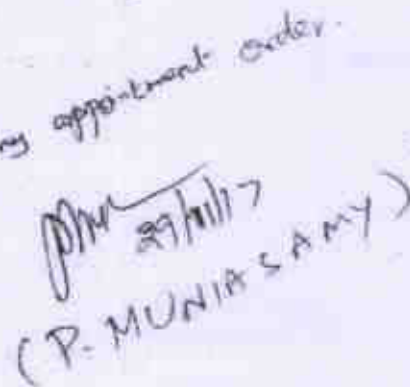 my appointment order.
29/11/17
(P. MUNIASAMY)